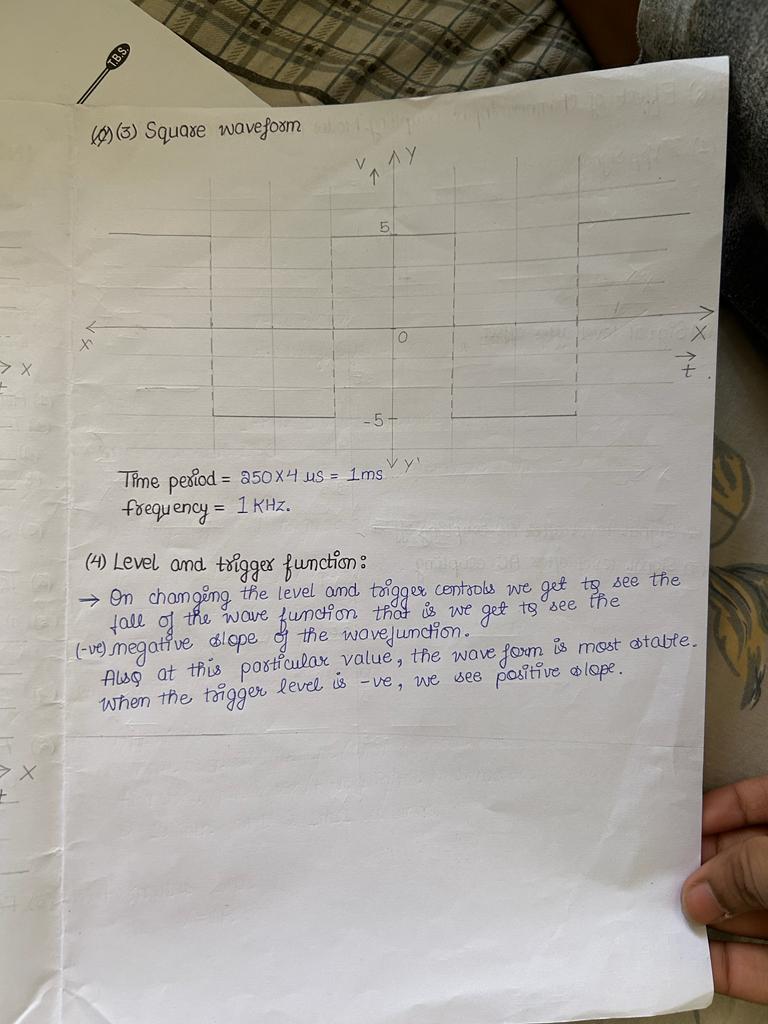 T.B.S.
(φ) (3) Square waveform
V ↑ Y
5
X' O X
→ t
-5
Y'
Time period = 250 X 4 us = 1ms
frequency = 1 KHz.
(4) Level and trigger function:
→ On changing the level and trigger controls we get to see the
fall of the wave function that is we get to see the
(-ve) negative slope of the wavefunction.
Also at this particular value, the wave form is most stable.
When the trigger level is -ve, we see positive slope.
X
t
X
t